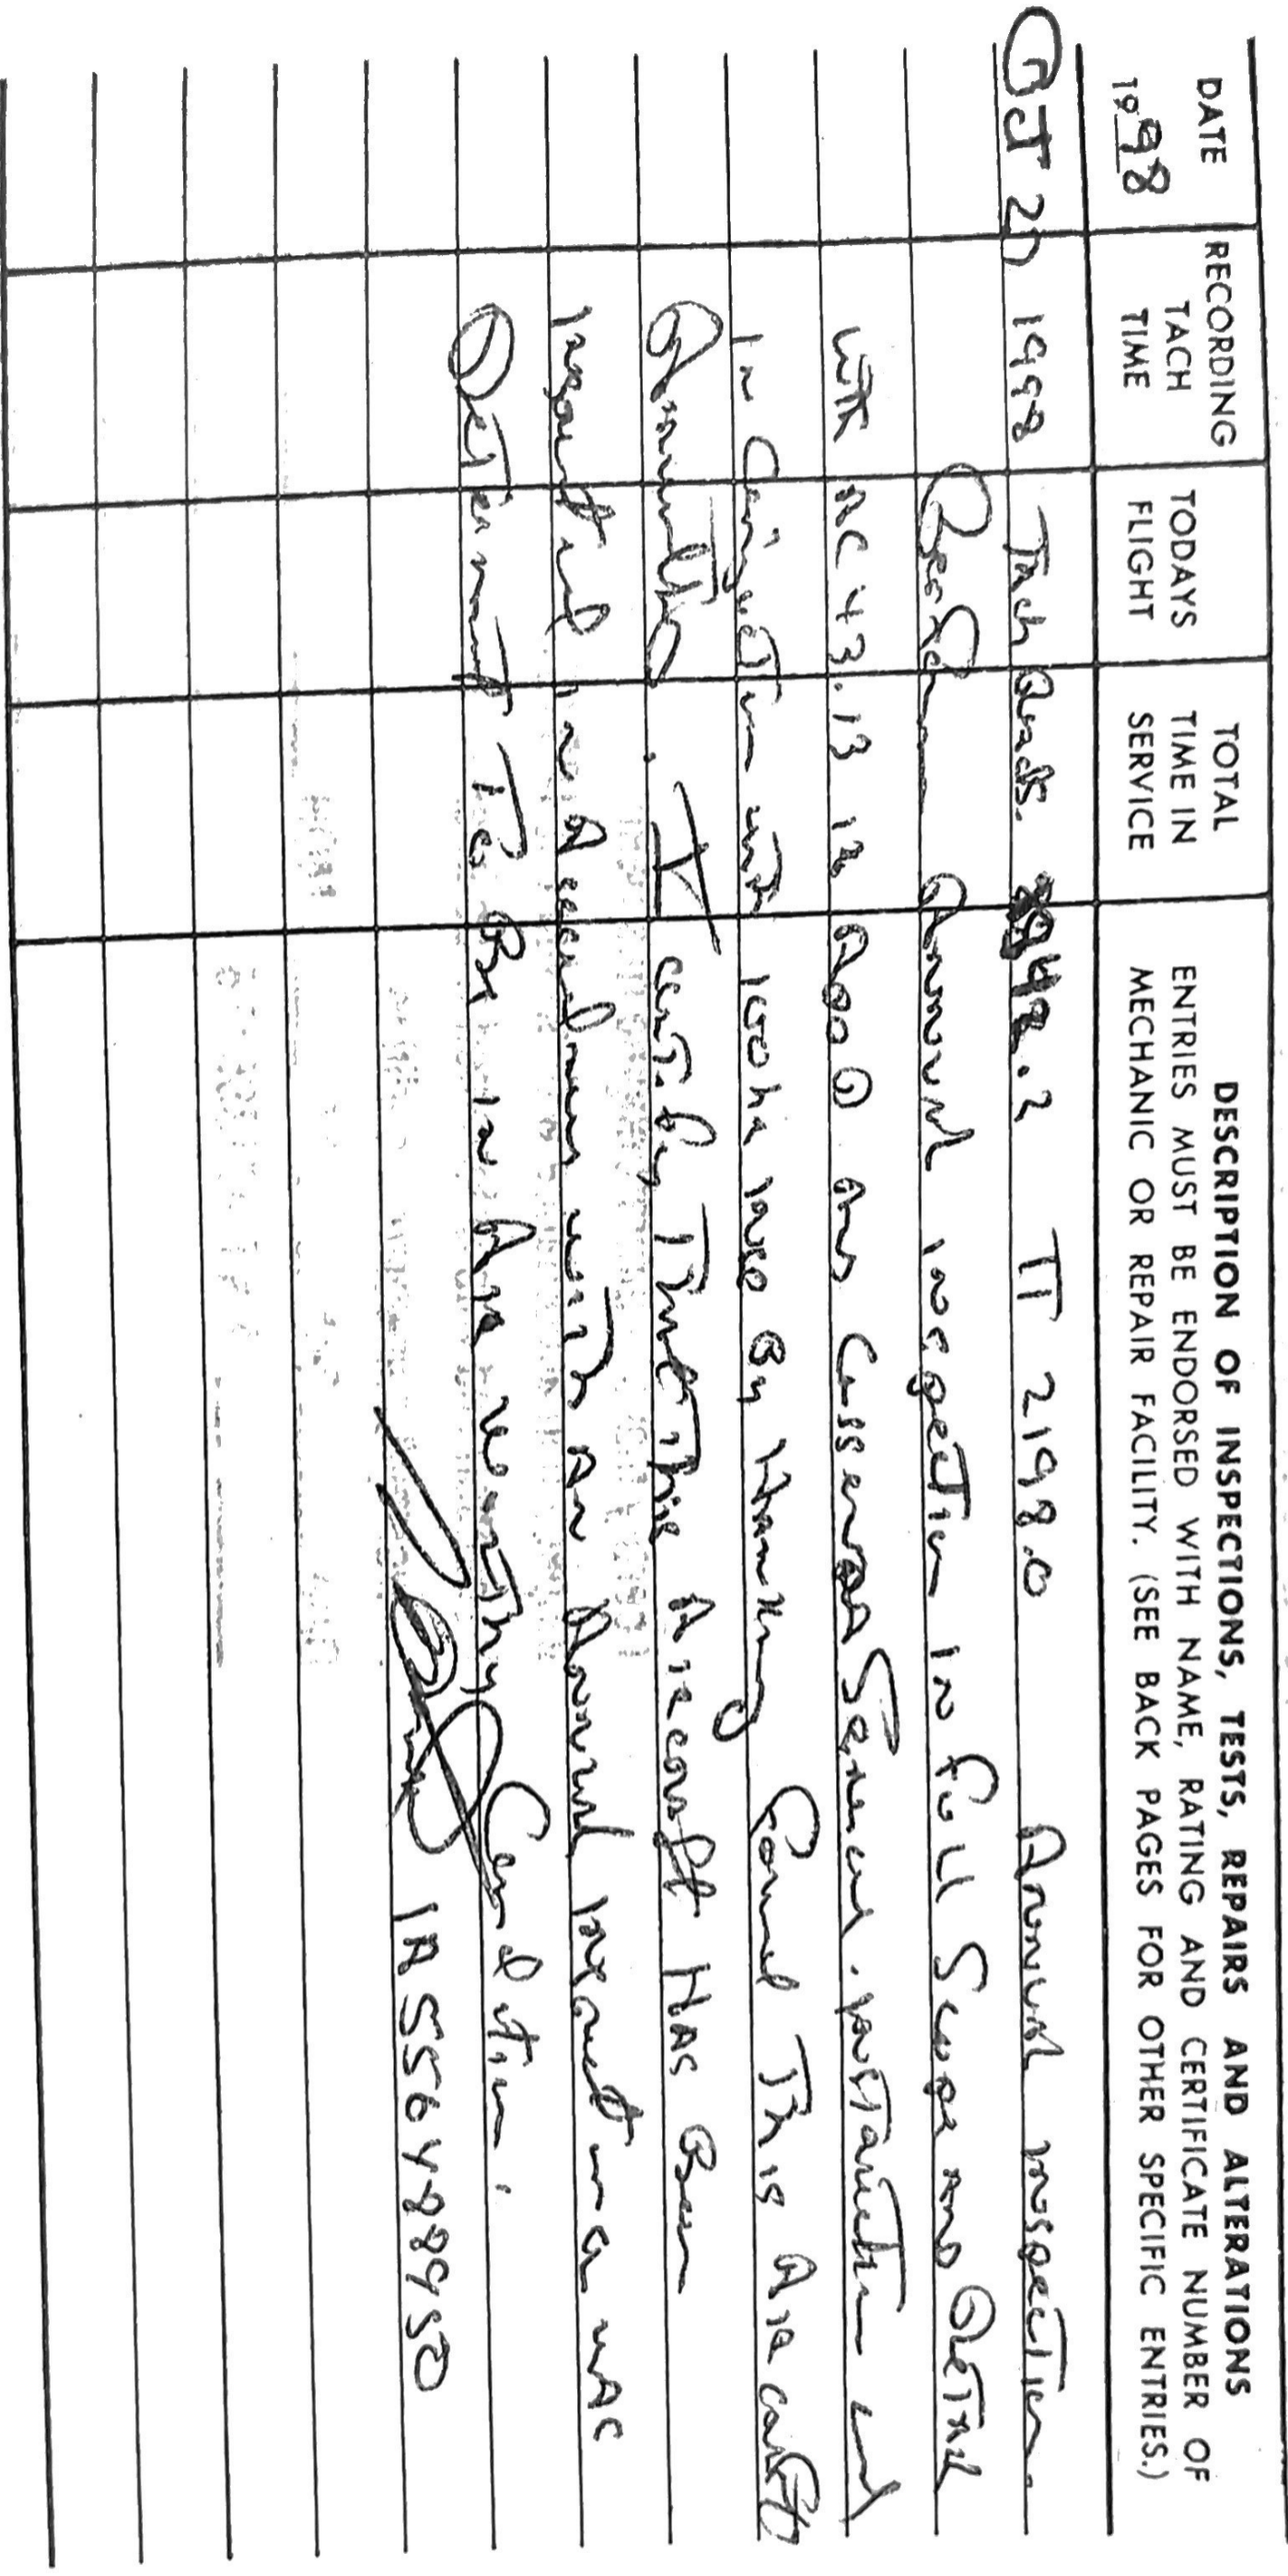 DATE
1998
RECORDING
TACH
TIME
TODAYS
FLIGHT
TOTAL
TIME IN
SERVICE
DESCRIPTION OF INSPECTIONS, TESTS, REPAIRS AND ALTERATIONS
ENTRIES MUST BE ENDORSED WITH NAME, RATING AND CERTIFICATE NUMBER OF
MECHANIC OR REPAIR FACILITY. (SEE BACK PAGES FOR OTHER SPECIFIC ENTRIES.)
1998 Tach Reads. TT 2198.0 Annual Inspection.
Annual Inspection In Full Scope and Detail
with AC 43.13 1A and and
In with 100hr By This Aircraft
. I certify That This Aircraft Has Been
Inspected in Accordance with An Annual Inspection was
Determined To Be in Airworthy Condition.
IA 556488950